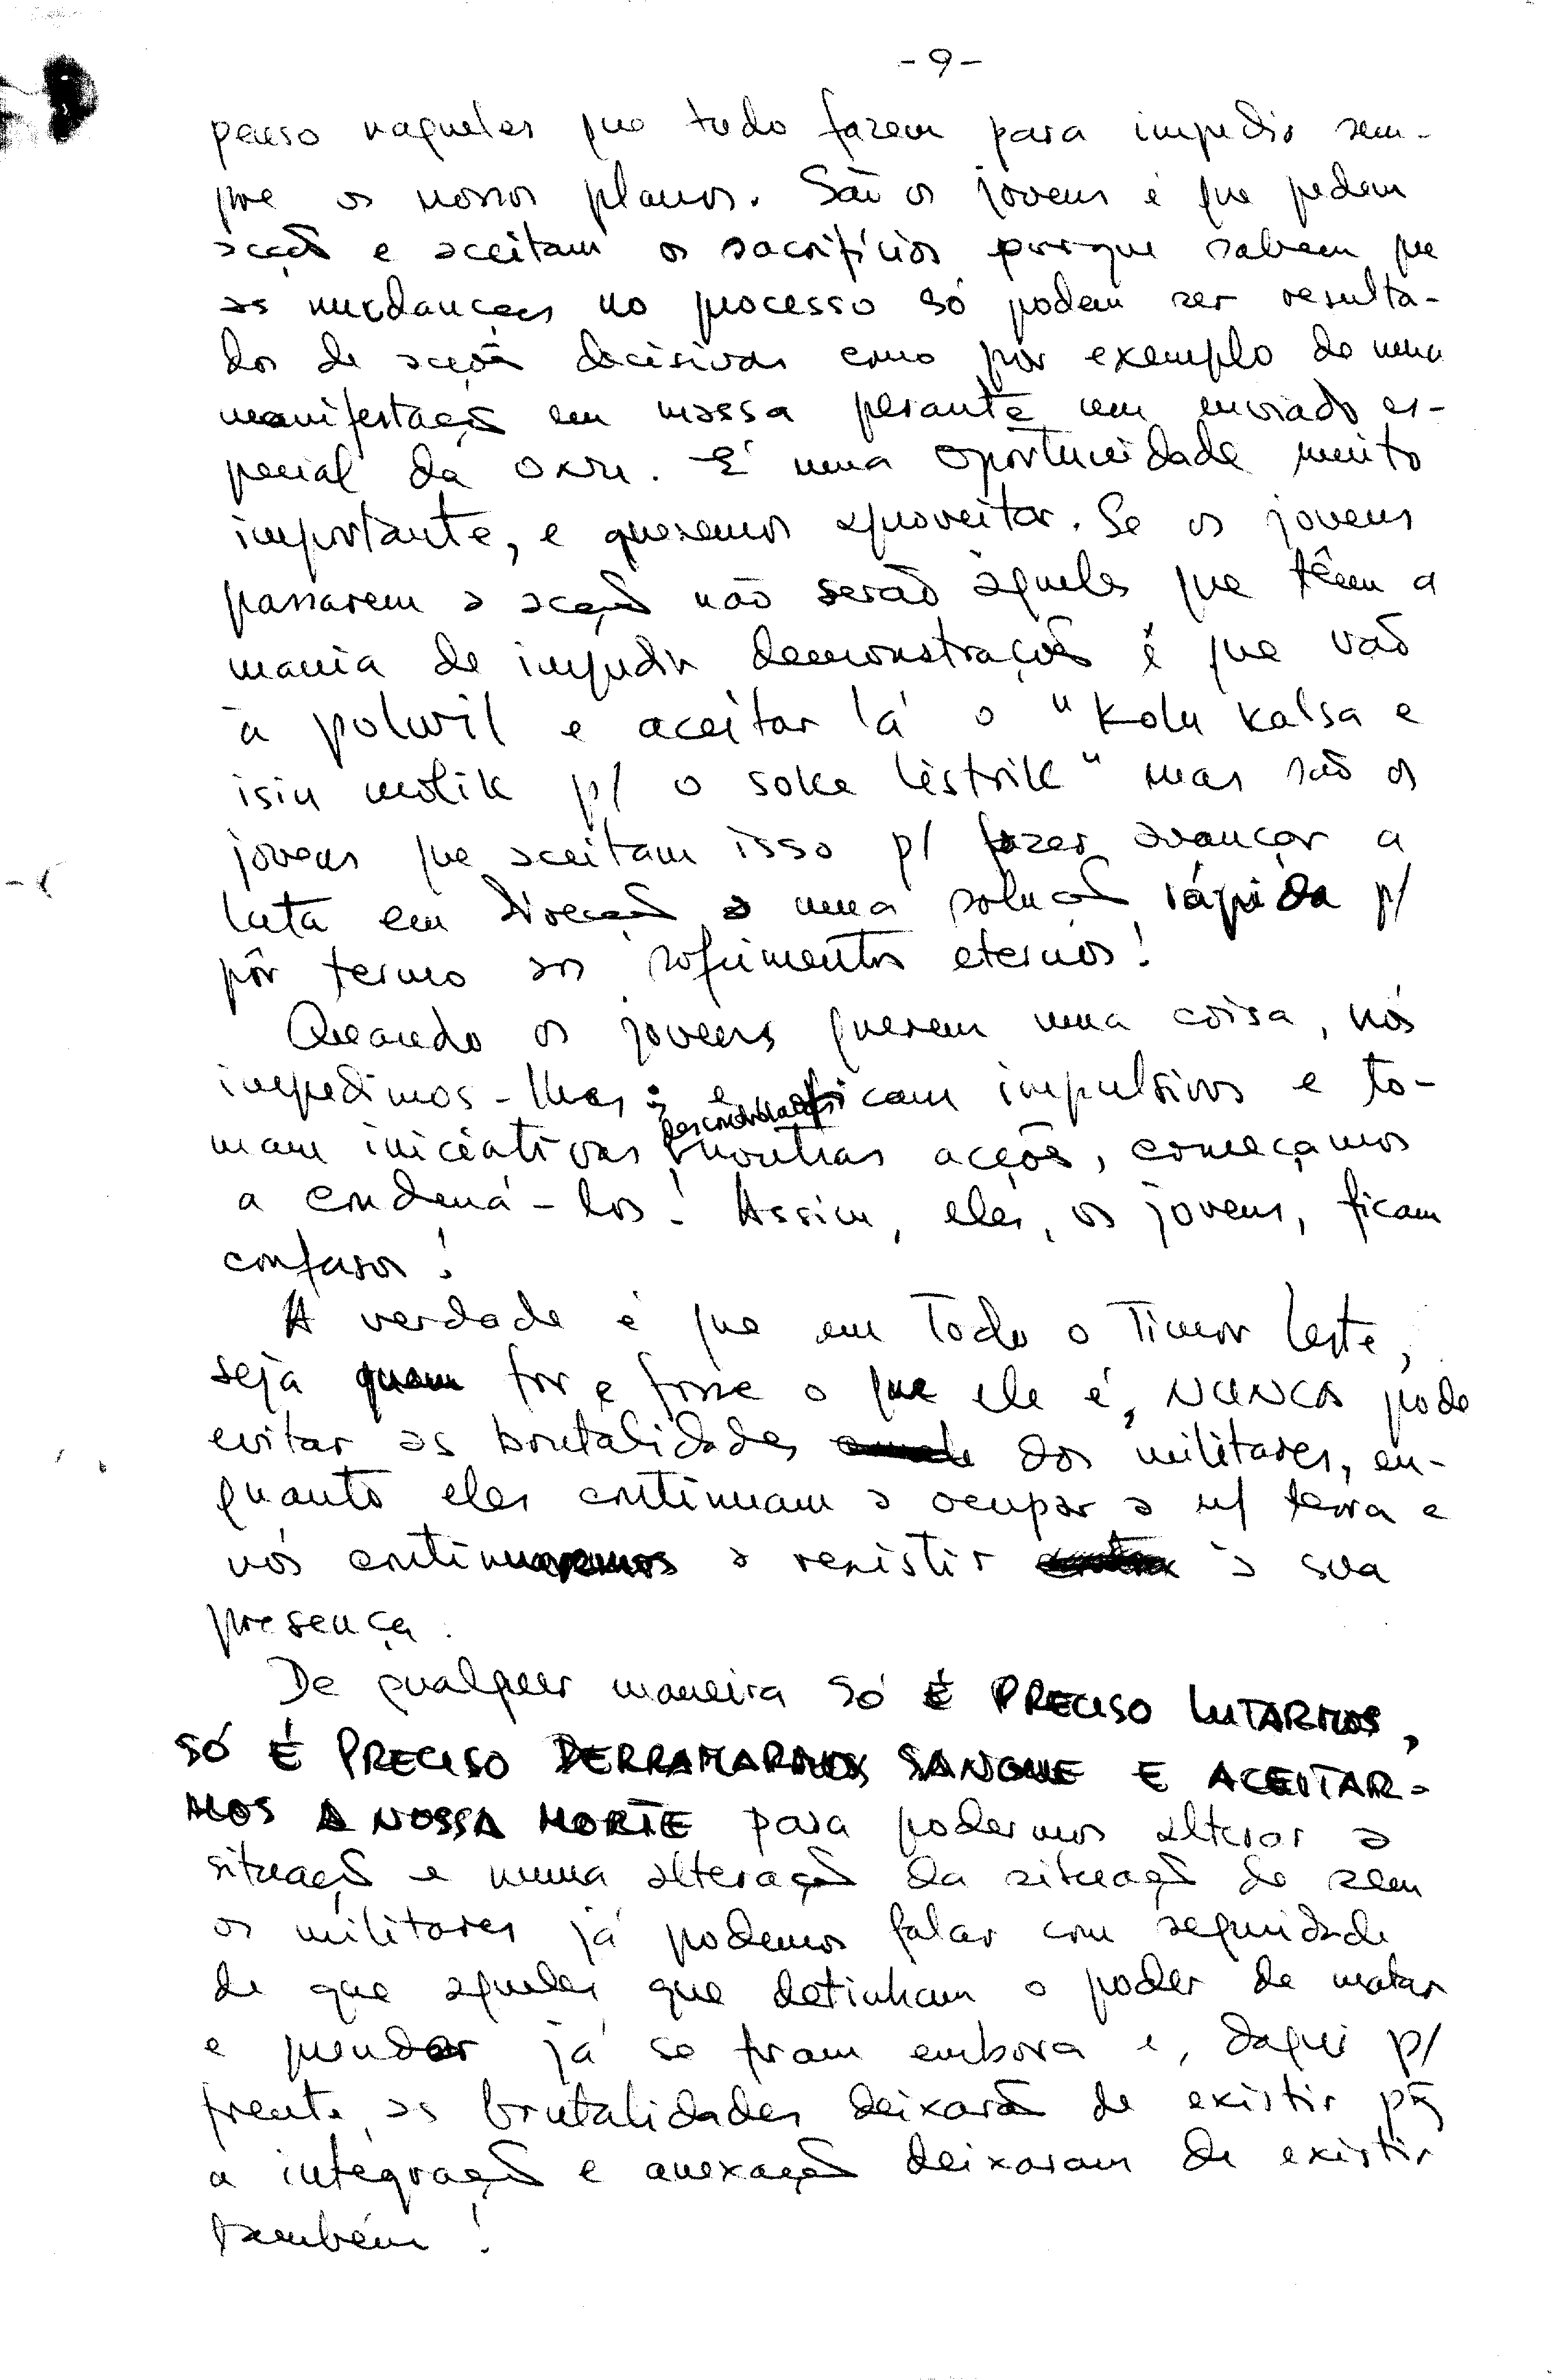 -9-
penso naqueles que tudo fazem para impedir sem-
pre os nossos planos. São os jovens é que pedem
acção e aceitam os sacrifícios porque sabem que
as mudanças no processo só podem ser resulta-
dos de acções decisivas como por exemplo de uma
manifestação em massa perante um enviado es-
pecial da ONU. É uma oportunidade muito
importante, e queremos aproveitar. Se os jovens
passarem a acção não serão aqueles que têm a
mania de impedir demonstrações é que vão
à polwil e aceitar lá o "Kolu kalsa e
isin molik p/ o soke listrik" mas são os
jovens que aceitam isso p/ fazer avançar a
luta em direcção a uma solução rápida p/
pôr termo aos sofrimentos eternos!
Quando os jovens querem uma coisa, nós
impedimos-lhas; e ficam impulsivos e to-
mam iniciativas descontroladas noutras acções, começamos
a condená-los! Assim, eles, os jovens, ficam
confusos!
A verdade é que em todo o Timor Leste,
seja quem for e fosse o que ele é, NUNCA pode
evitar as brutalidades dos militares, en-
quanto eles continuam a ocupar a n/ terra e
nós continuaremos a resistir à sua
presença.
De qualquer maneira só É PRECISO LUTARMOS,
SÓ É PRECISO DERRAMARMOS SANGUE E ACEITAR-
MOS A NOSSA MORTE para podermos alterar a
situação e numa alteração da situação de sem
os militares já podemos falar com seguridade
de que aqueles que detinham o poder de matar
e prender já se foram embora e, daqui p/
frente, as brutalidades deixarão de existir pq
a integração e anexação deixaram de existir
também!